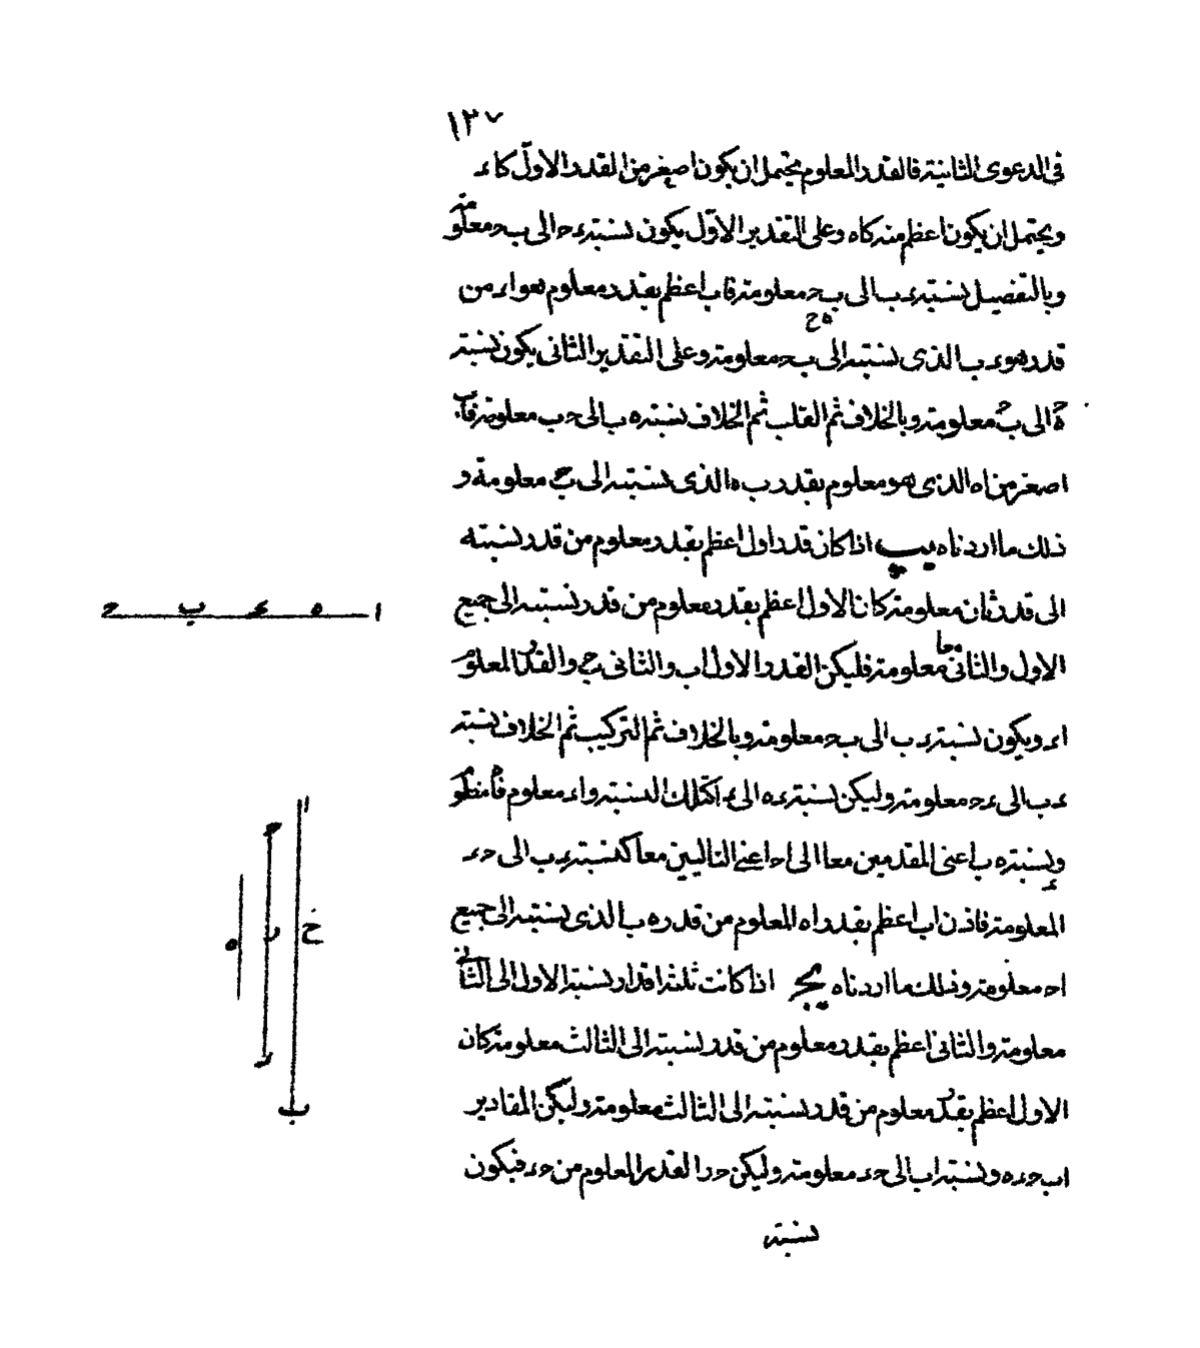 ١٣٧
فى الدعوى الثانية فالقدر المعلوم يحتمل ان يكون اصغر من القدر الاول كاء
ويحتمل ان يكون اعظم منه كاه وعلى التقدير الاول يكون نسبة ءح الى ب ح معلومة
وبالتفصيل نسبة ء ب الى ب ح معلومة فاب اعظم بقدر معلوم هو اء من
قدر هو ء ب الذى نسبته الى ب ح معلومة وعلى التقدير الثانى يكون نسبة
ه ح
ه ح الى ب ح معلومة وبالخلاف ثم القلب ثم الخلاف نسبة ه ب الى ح ب معلومة فاب
اصغر من اه الذى هو معلوم بقدر ب ه الذى نسبته الى ب ح معلومة و
ذلك ما اردناه يب اذا كان قدر اول اعظم بقدر معلوم من قدر نسبته
الى قدر ثان معلومة كان الاول اعظم بقدر معلوم من قدر نسبته الى جميع
الاول والثانى معا معلومة فليكن القدر الاول اب والثانى ب ح والقدر المعلوم
اء ويكون نسبة ء ب الى ب ح معلومة وبالخلاف ثم التركيب ثم الخلاف نسبة
ء ب الى ء ح معلومة وليكن نسبة ءه الى ء ا كتلك النسبة واء معلوم فه ء معلوم
ونسبة ه ب اعنى المقدمين معا الى اح اعنى التاليين معا كنسبة ء ب الى ح ء
المعلومة فاذن اب اعظم بقدر اه المعلوم من قدر ه ب الذى نسبته الى جميع
اح معلومة وذلك ما اردناه يج اذا كانت ثلثة اقدار نسبة الاول الى الثانى
معلومة والثانى اعظم بقدر معلوم من قدر نسبته الى الثالث معلومة كان
الاول اعظم بقدر معلوم من قدر نسبته الى الثالث معلومة وليكن المقادير
اب حء ه ونسبة اب الى حء معلومة وليكن حر القدر المعلوم من حء فيكون
نسبة
ا ه ء ب ح
ا
ح
ح
ر
ه
ء
ب